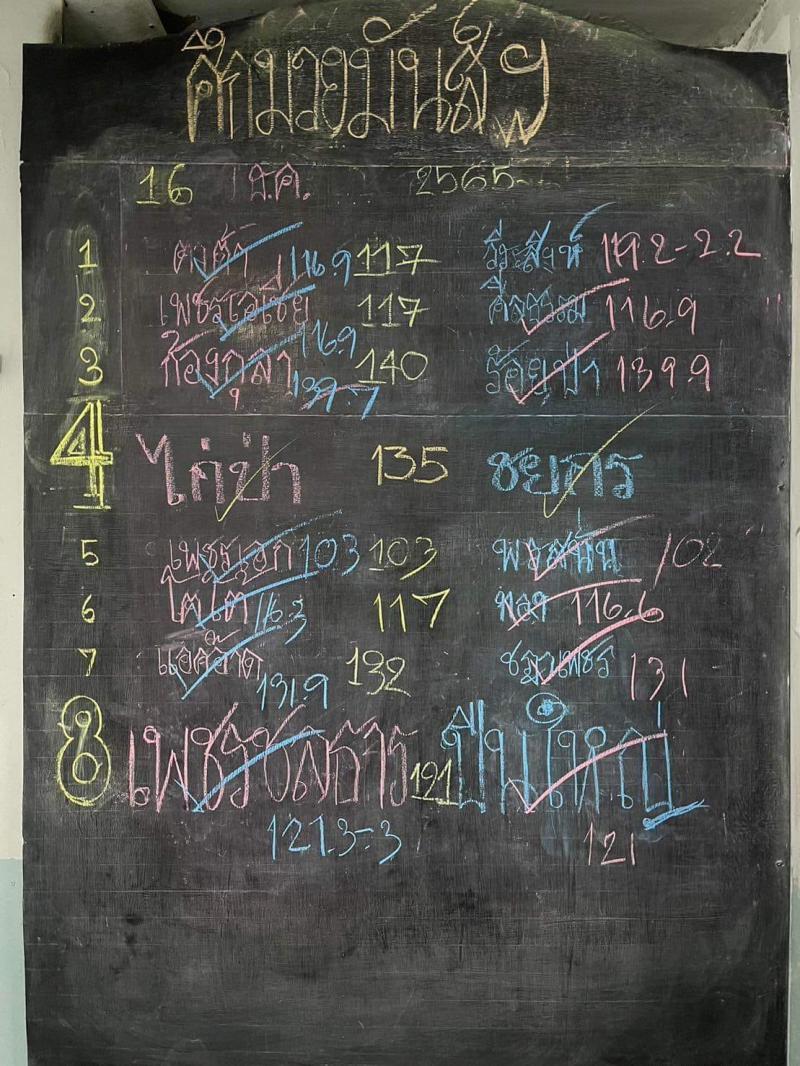 ศึกมวยมันส์ฯ
16 ธ.ค. 2565
1 คงศักดิ์ 116.9 117 วีระสิงห์ 119.2-2.2
2 เพชรเอเชีย 116.9 117 ศีลธรรม 116.9
3 ก้องกุลา 139.7 140 ร้อยป่า 139.9
4 ไก่ป่า 135 ชยกร
5 เพชร 103 103 102
6 โตโต 116.3 117 พลก 116.6
7 132 เพชร 131
8 เพชรชลธาร 121 ปืนใหญ่
131.9
121.3-.3 121